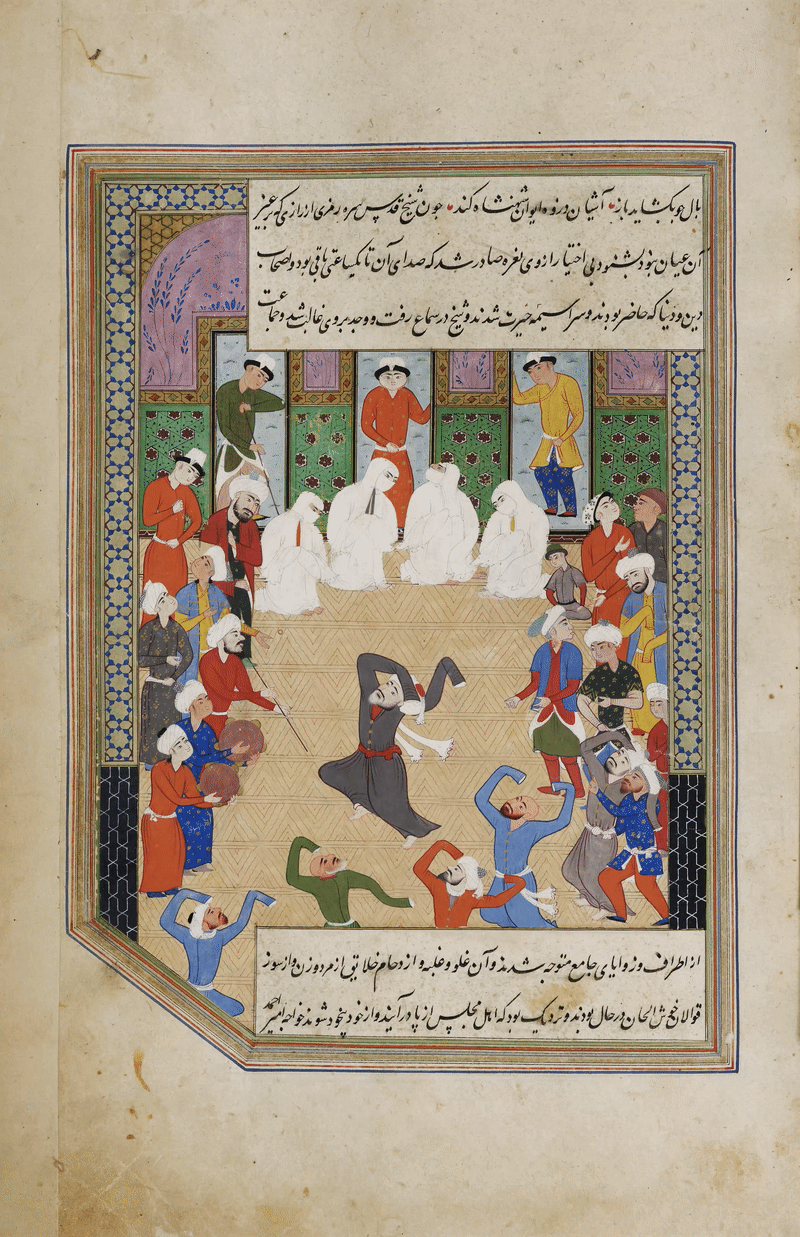 بال چو بگشاید باز آشیان در زوه ایوان شهنشاه کند چون شیخ قدس سره رمزی از رازی که بر
آن عیان نبود بشنود بی اختیار از وی نعره صادر شد که صدای آن تا یکساعتی باقی بود و اصحاب
دین و دنیا که حاضر بودند و سراسیمه حیرت شدند و شیخ در سماع رفت و وجد بر وی غالب شد و جماعت
از اطراف و زوایای جامع متوجه شدند و آن غلو و غلبه و ازدحام خلایق از مرد و زن و از سوز
قوالان خوش الحان در حال بودند و نزدیک بود که اهل مجلس از پا درآیند و از خود بیخود شوند خواجه امیر احمد